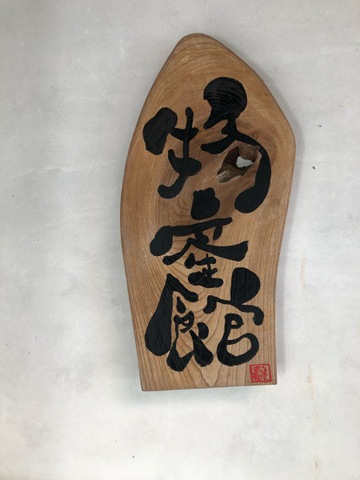 物産館